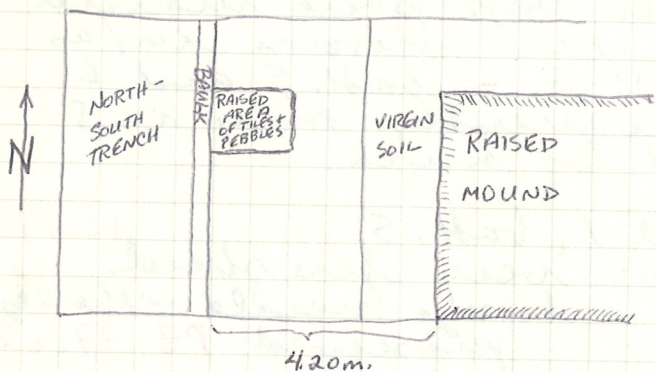 N
NORTH-
SOUTH
TRENCH
BAULK
RAISED
AREA
OF TILES +
PEBBLES
VIRGIN
SOIL
RAISED
MOUND
4.20m.